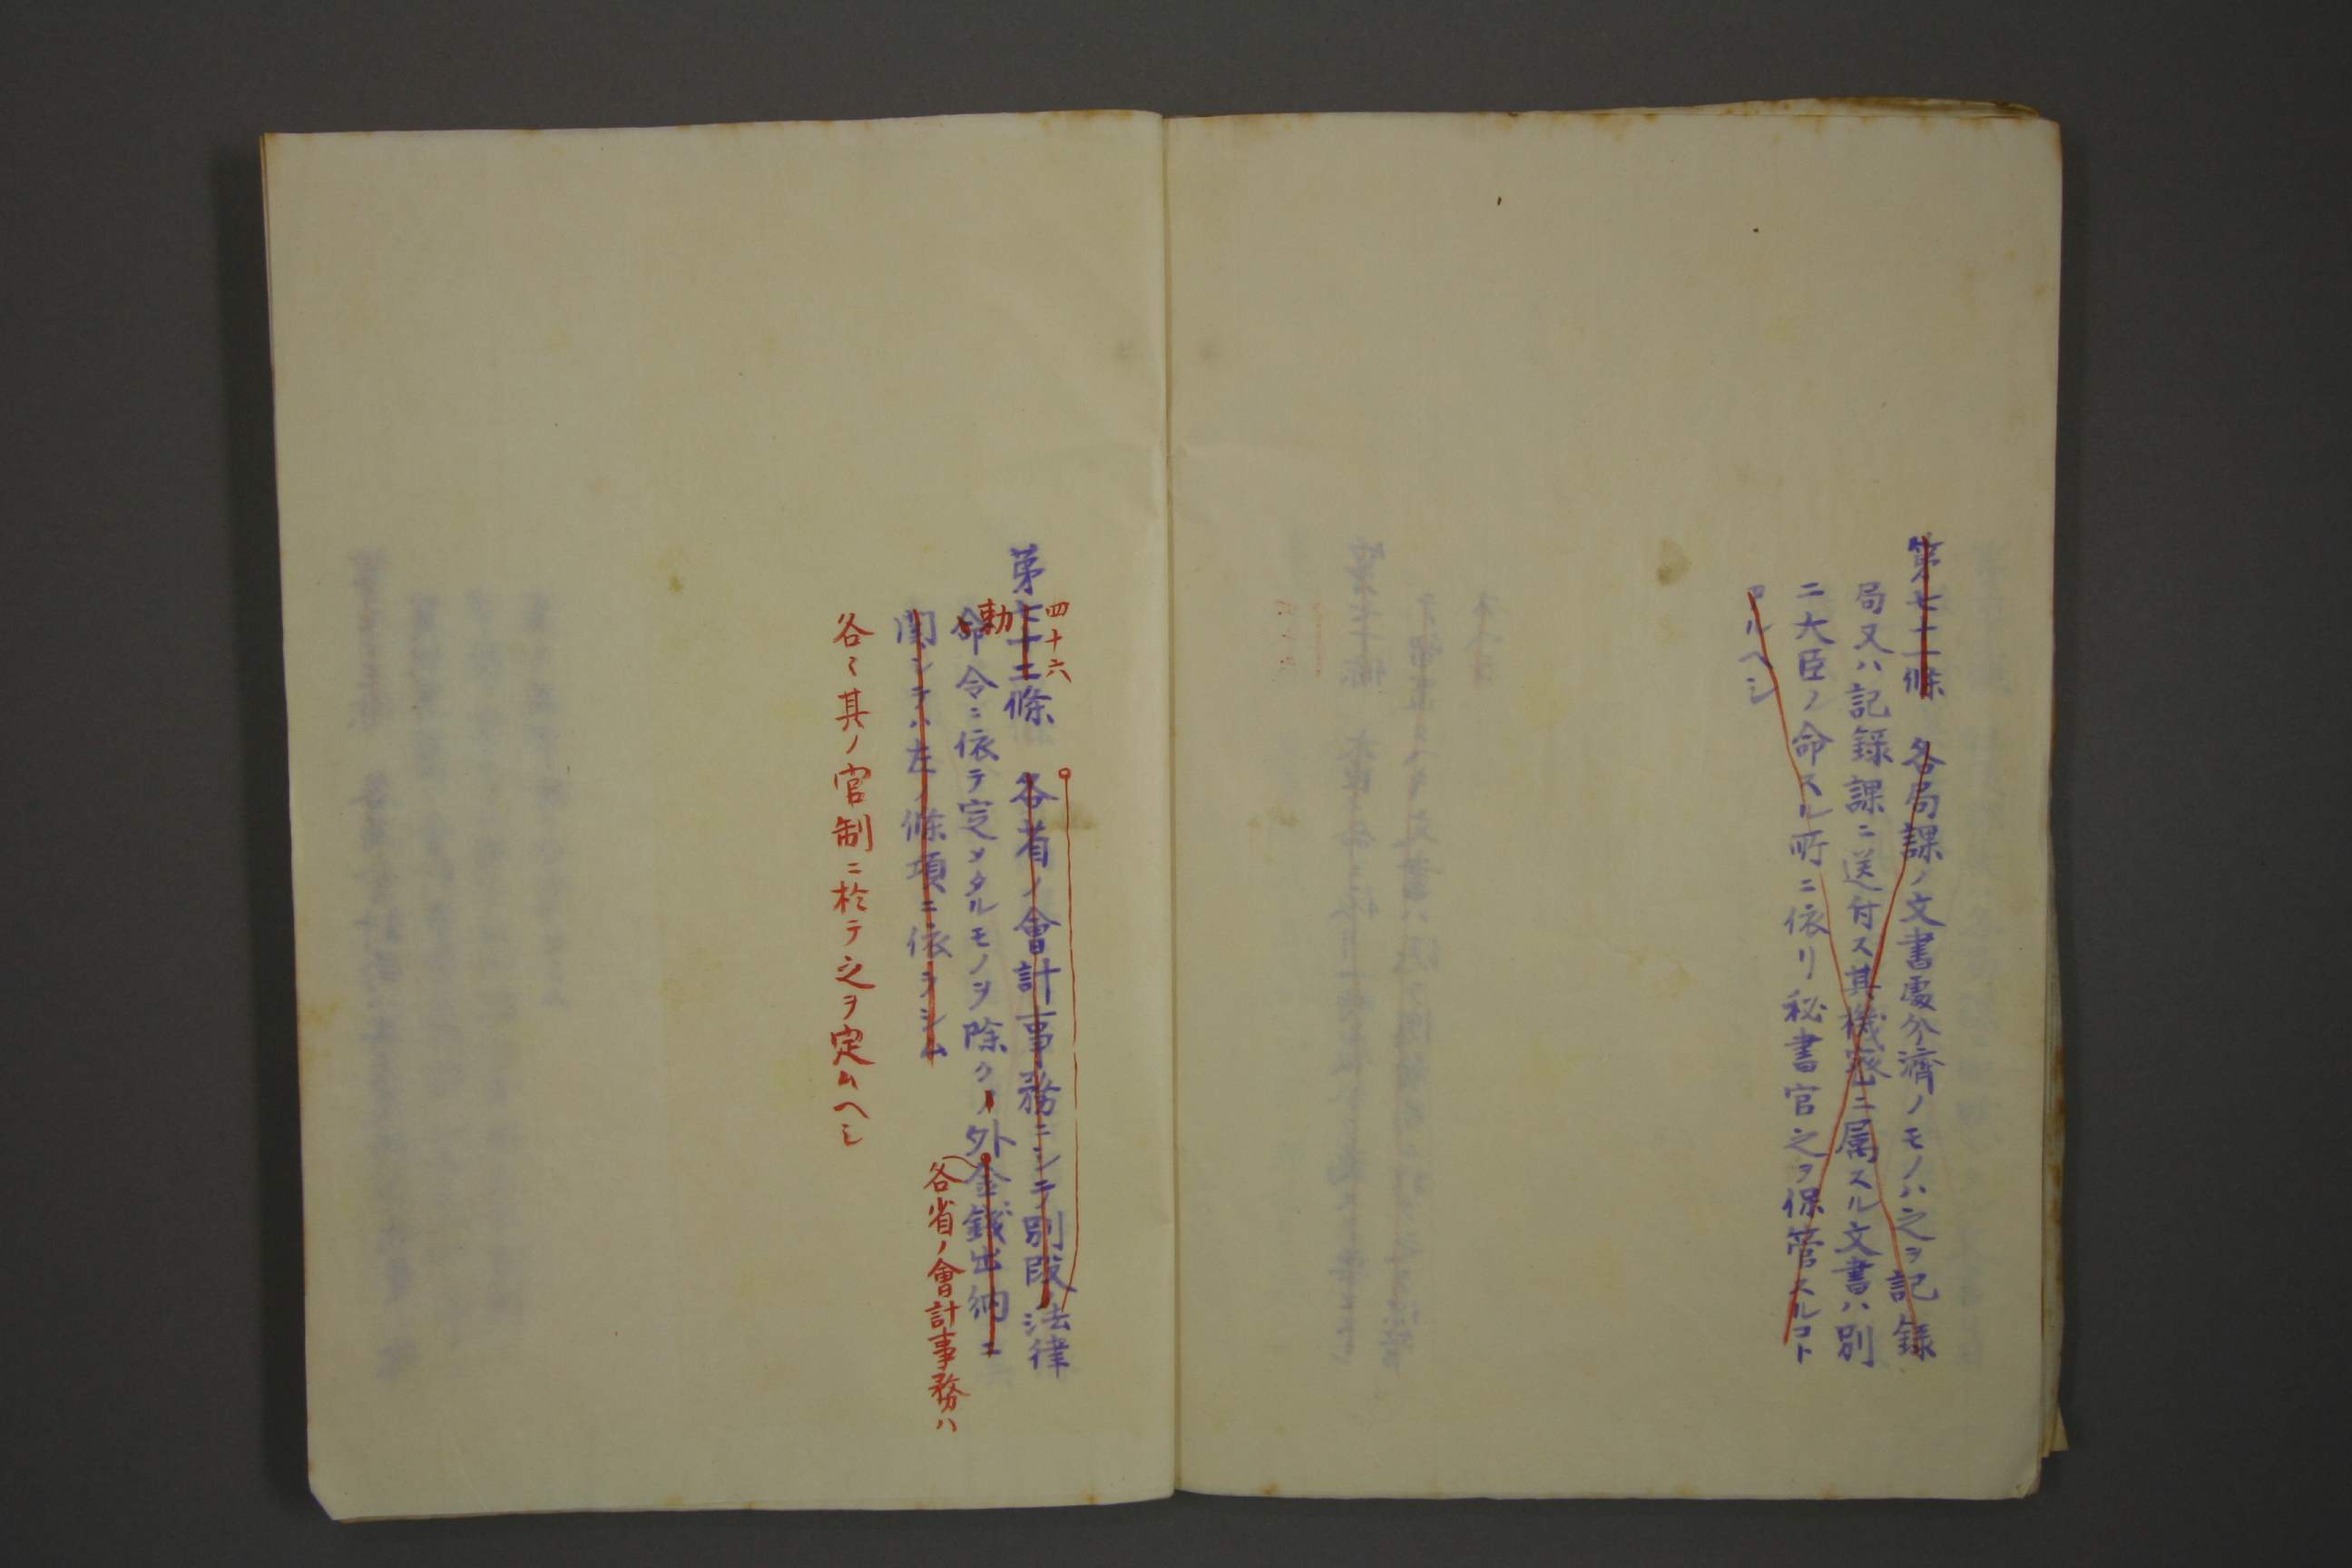 第七十一條　各局課ノ文書處分濟ノモノハ之ヲ記録
局又ハ記録課ニ送付ス其機密ニ属スル文書ハ別
ニ大臣ノ命スル所ニ依リ秘書官之ヲ保管スルコト
アルヘシ
四十六
第七十二條　各省ノ會計事務ニシテ別段ノ法律
勅
命令ニ依テ定メタルモノヲ除クノ外金錢出納ニ
各省ノ會計事務ハ
関シテハ左ノ條項ニ依ラシム
各々其ノ官制ニ於テ之ヲ定ムヘシ